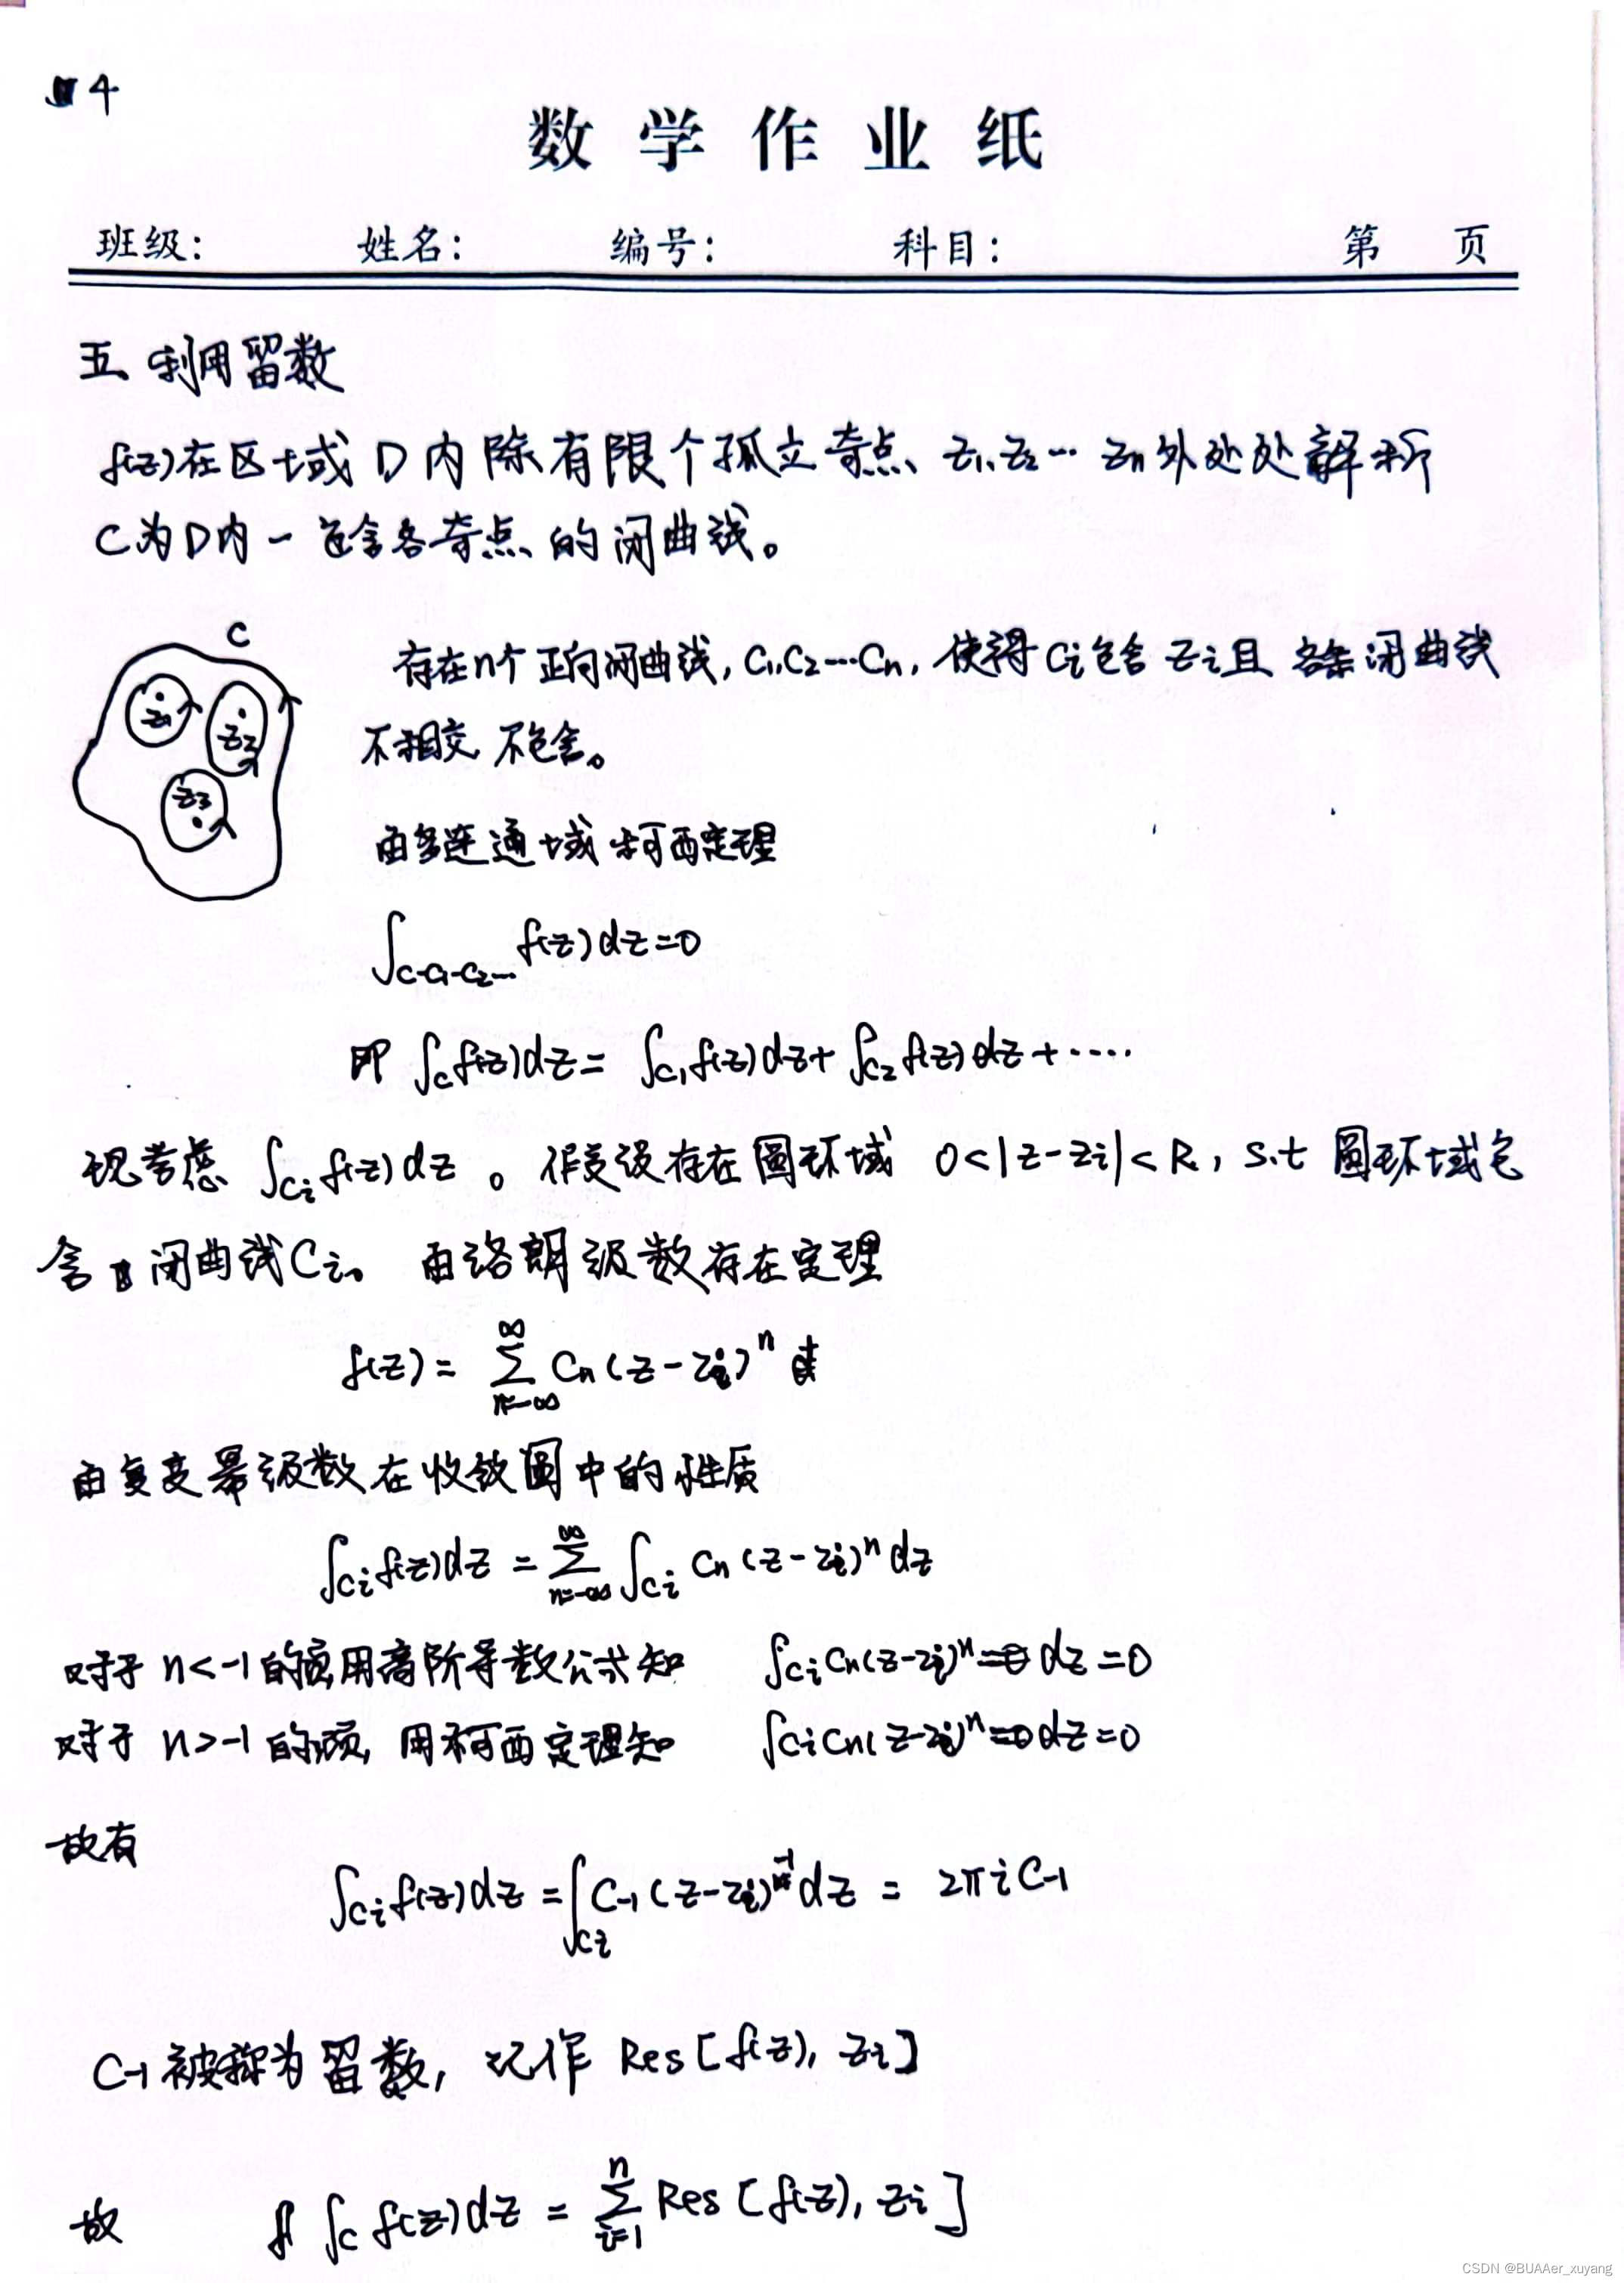 4
数学作业纸
班级: 姓名: 编号: 科目: 第 页
五、利用留数
f(z)在区域D内除有限个孤立奇点、z₁,z₂…zn外处处解析
C为D内一包含各奇点的闭曲线。
C
z₁
z₂
z₃
存在n个正向闭曲线,C₁,C₂…Cn,使得Ci包含zi且各条闭曲线
不相交 不包含。
由多连通域柯西定理
∫_{C-C₁-C₂…} f(z)dz=0
即 ∫_C f(z)dz = ∫_{C₁} f(z)dz + ∫_{C₂} f(z)dz + ····
现考虑 ∫_{Ci} f(z)dz 。假设存在圆环域 0<|z-zi|<R, s.t 圆环域包
含 闭曲线Ci。 由洛朗级数存在定理
f(z) = ∑_{n=-∞}^{∞} Cn(z-zi)^n
由复变幂级数在收敛圆中的性质
∫_{Ci} f(z)dz = ∑_{n=-∞}^{∞} ∫_{Ci} Cn(z-zi)^n dz
对于 n<-1 的项用高阶导数公式知 ∫_{Ci} Cn(z-zi)^n dz=0
对于 n>-1 的项,用柯西定理知 ∫_{Ci} Cn(z-zi)^n dz=0
故有
∫_{Ci} f(z)dz = ∫_{Ci} C₋₁(z-zi)^{-1} dz = 2πi C₋₁
C₋₁被称为留数, 记作 Res[f(z), zi]
故 ∫_C f(z)dz = ∑_{i=1}^{n} Res[f(z), zi]
CSDN @BUAAer_xuyang